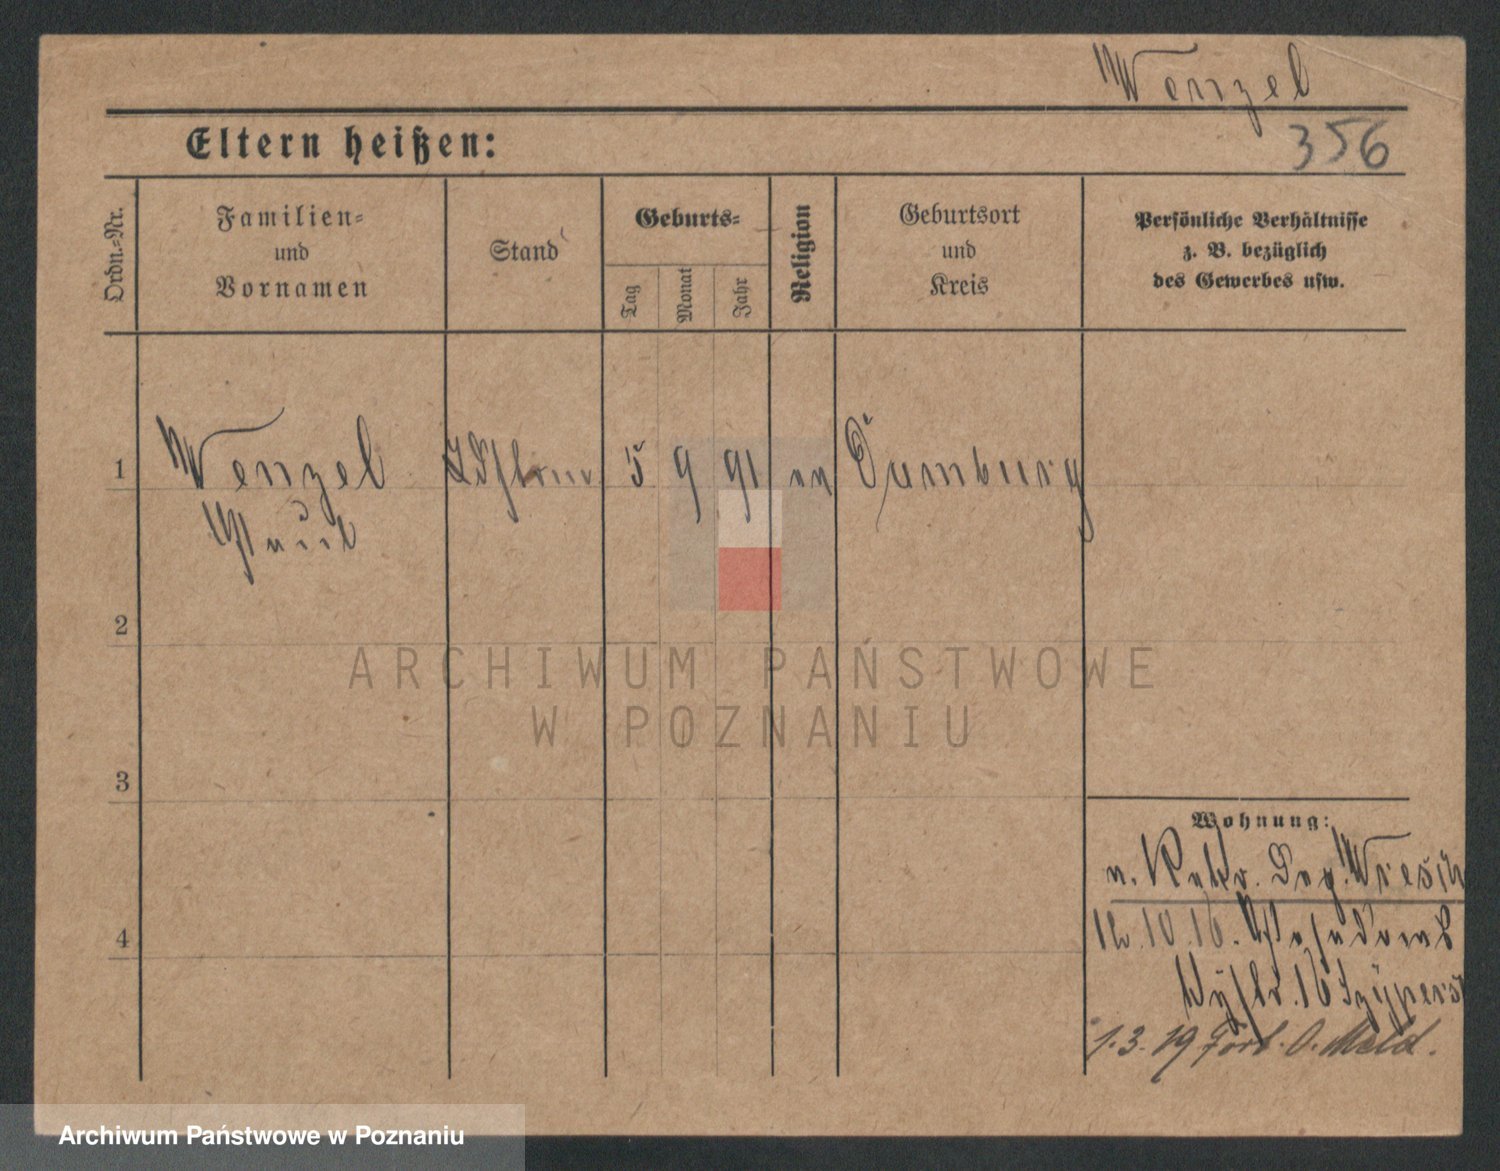 Wenzel
Eltern heißen:
356
Ordn.-Nr.
Familien-
und
Vornamen
Stand
Geburts-
Tag
Monat
Jahr
Religion
Geburtsort
und
Kreis
Persönliche Verhältnisse
z. B. bezüglich
des Gewerbes usw.
1
Wenzel
5 9 91
Paul
2
ARCHIWUM PAŃSTWOWE
W POZNANIU
3
Wohnung:
4
12.10.16.
16
1.3.19 Fort. O. Meld.
Archiwum Państwowe w Poznaniu